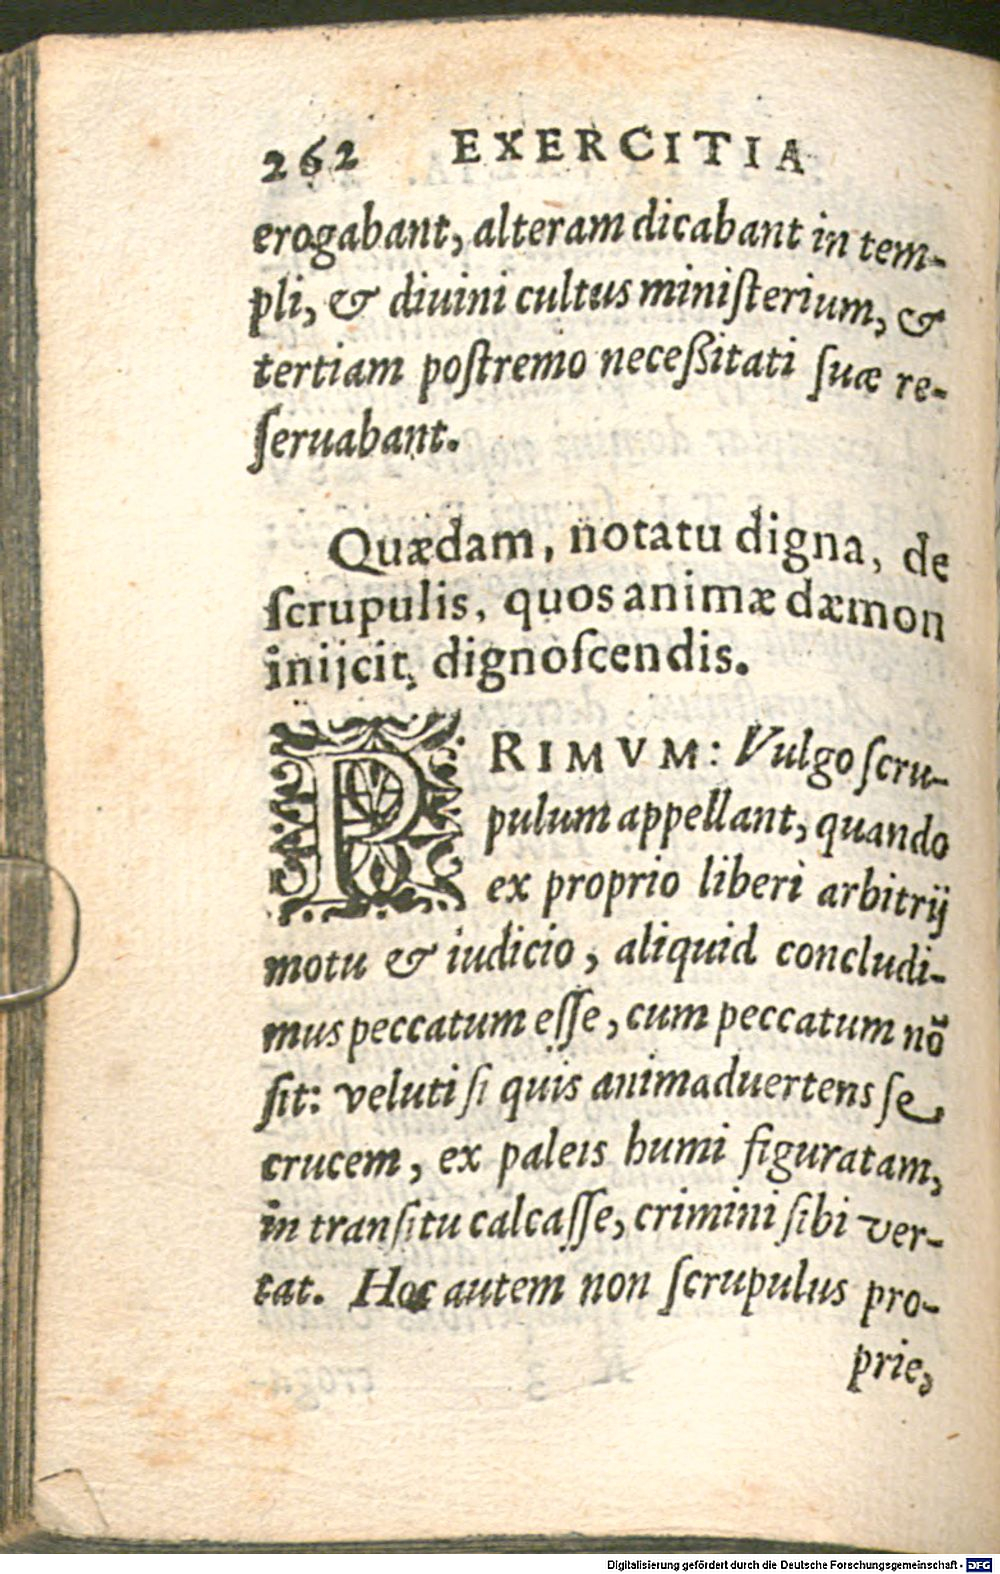 262 EXERCITIA
erogabant, alteram dicabant in tem-
pli, & diuini cultus miniſterium, &
tertiam poſtremo neceßitati ſuæ re-
ſeruabant.
Quædam, notatu digna, de
ſcrupulis, quos animæ dæmon
inijcit, dignoſcendis.
PRIMVM: Vulgo ſcru-
pulum appellant, quando
ex proprio liberi arbitrij
motu & iudicio, aliquid concludi-
mus peccatum eſſe, cum peccatum nō
ſit: veluti ſi quis animaduertens ſe
crucem, ex paleis humi figuratam,
in tranſitu calcaſſe, crimini ſibi ver-
tat. Hoc autem non ſcrupulus pro-
prie,
Digitalisierung gefördert durch die Deutsche Forschungsgemeinschaft - DFG